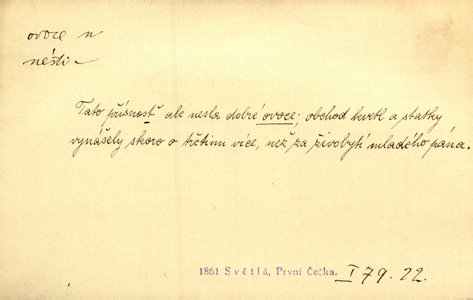 ovoce n
nésti
Tato přísnost ale nesla dobré ovoce; obchod kvetl a statky
vynášely skoro o třetinu více, než za živobytí mladého pána.
1861 Světlá, První Češka. I 79. 22.